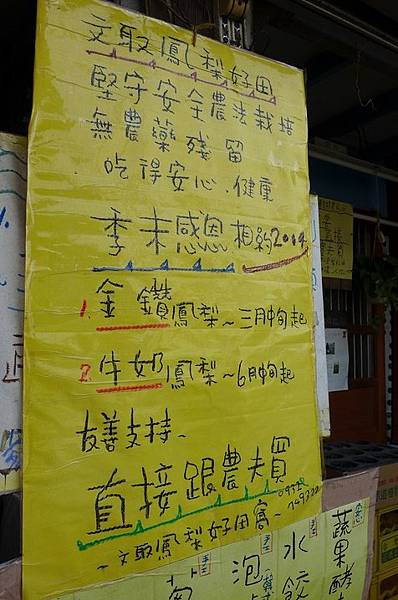 文取鳳梨好田
堅守安全農法栽培
無農藥殘留
吃得安心.健康
季末感恩相約2014
1.金鑽鳳梨~三月中旬起
2.牛奶鳳梨~6月中旬起
友善支持、
直接跟農夫買
~文取鳳梨好田窩~
手工
泡
手工
水餃
蔬果酵